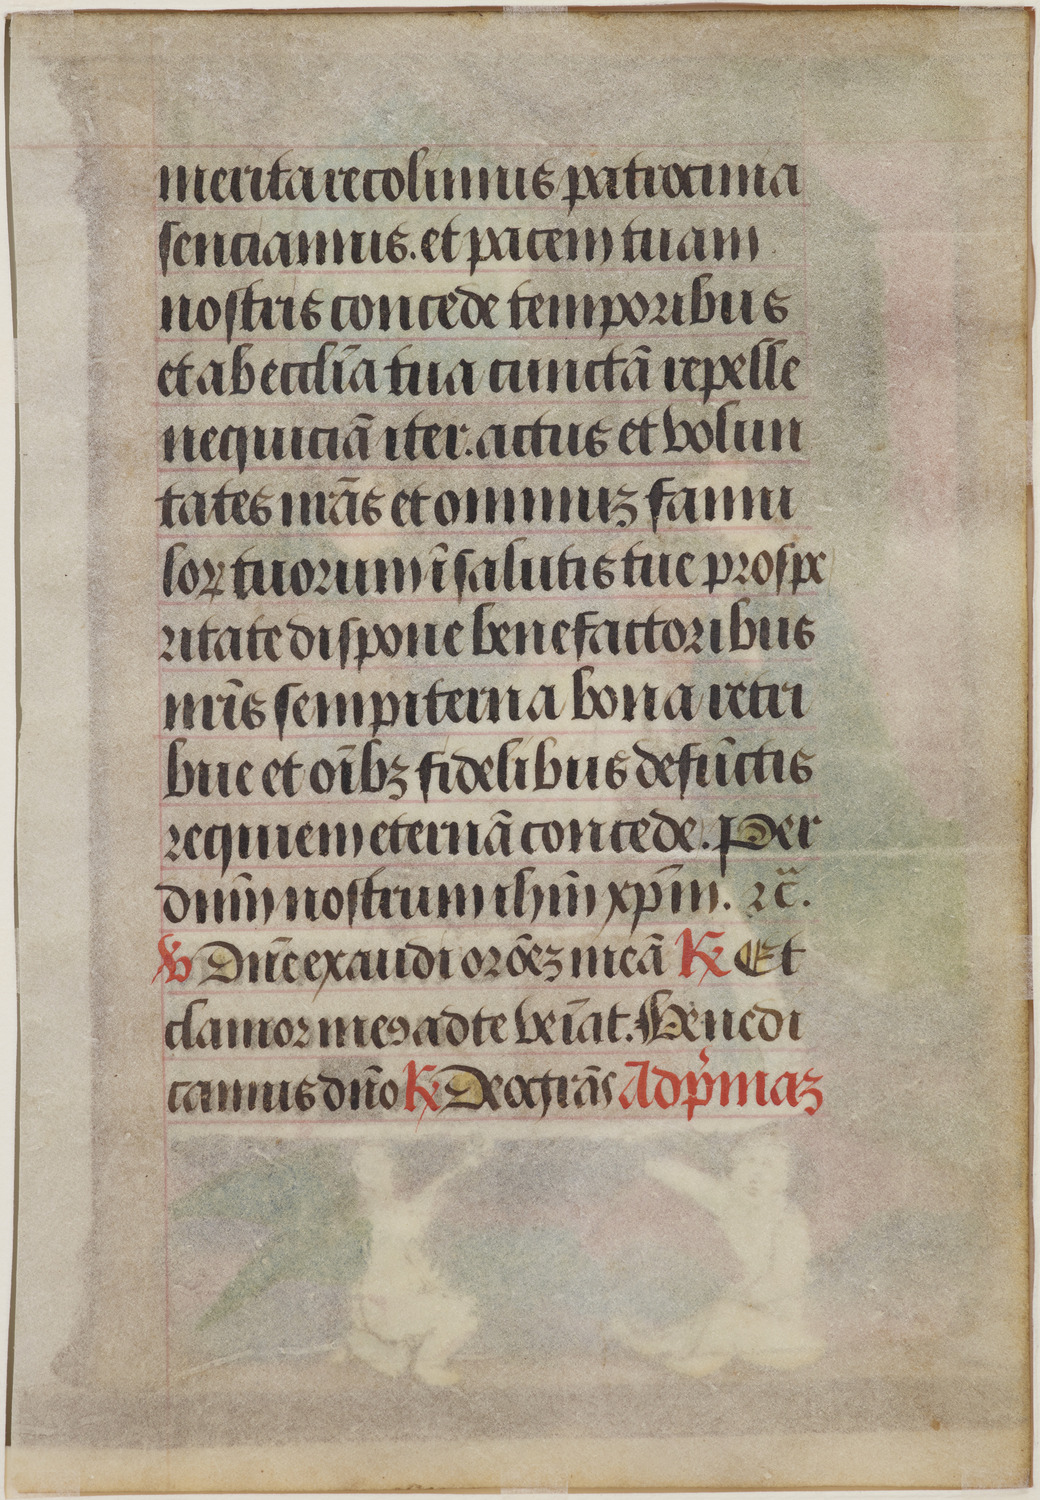 merita recolimus patrocinia
senciamus. et pacem tuam
nostris concede temporibus
et ab eccľia tua cunctã repelle
nequiciã iter. actus et volun
tates nr̃as et omniuꝫ famu
loꝝ tuorum ĩ salutis tue prospe
ritate dispone benefactoribus
nr̃is sempiterna bona retri
bue et oĩbꝫ fidelibus defũctis
requiem eternã concede. Per
dnm̃ nostrum ihm̃ xpm̃. ⁊c̃.
℣ Dñe exaudi orõeꝫ meã ℟ Et
clamor meꝰ ad te veĩat. Benedi
camus dño ℟ Deo grãs Ad pͥmaꝫ